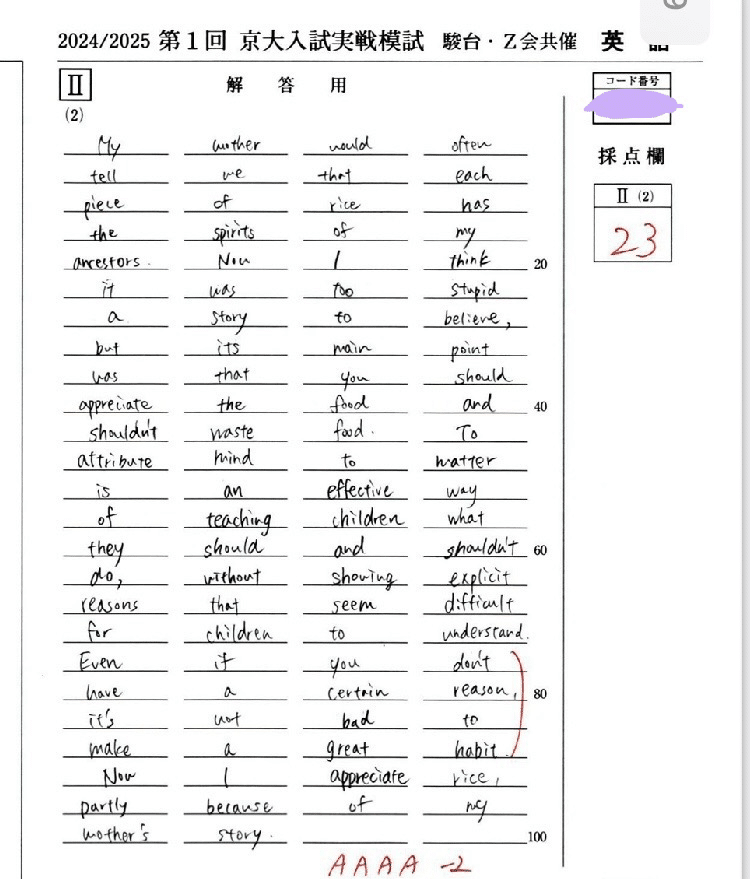 2024/2025 第1回 京大入試実戦模試 駿台・Z会共催 英語
II 解答用
(2)
コード番号
採点欄
II (2)
23
My mother would often
tell me that each
piece of rice has
the spirits of my
ancestors. Now I think 20
it was too stupid
a story to believe,
but its main point
was that you should
appreciate the food and 40
shouldn't waste food. To
attribute mind to matter
is an effective way
of teaching children what
they should and shouldn't 60
do, without showing explicit
reasons that seem difficult
for children to understand.
Even if you don't
have a certain reason, 80
it's not bad to
make a great habit.
Now I appreciate rice,
partly because of my
mother's story. 100
A A A A -2